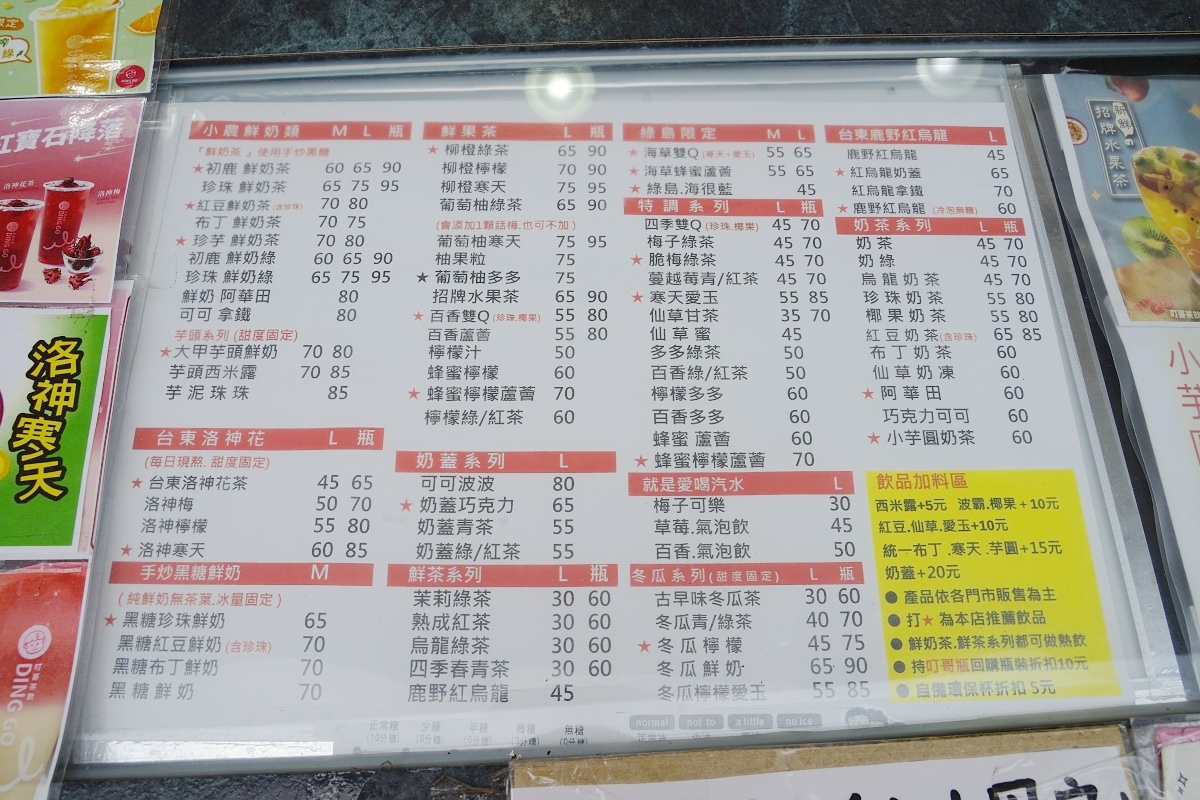 小農鮮奶類 M L 瓶
『鮮奶茶』使用手炒黑糖
★初鹿 鮮奶茶 60 65 90
珍珠 鮮奶茶 65 75 95
★紅豆鮮奶茶(含珍珠) 70 80
布丁 鮮奶茶 70 75
★珍芋 鮮奶茶 70 80
初鹿 鮮奶綠 60 65 90
珍珠 鮮奶綠 65 75 95
鮮奶 阿華田 80
可可 拿鐵 80
芋頭系列 (甜度固定)
★大甲芋頭鮮奶 70 80
芋頭西米露 70 85
芋泥珠珠 85
台東洛神花 L 瓶
(每日現熬. 甜度固定)
★台東洛神花茶 45 65
洛神梅 50 70
洛神檸檬 55 80
★洛神寒天 60 85
手炒黑糖鮮奶 M
(純鮮奶無茶葉.冰量固定)
★黑糖珍珠鮮奶 65
黑糖紅豆鮮奶(含珍珠) 70
黑糖布丁鮮奶 70
黑糖鮮奶 70
鮮果茶 L 瓶
★柳橙綠茶 65 90
柳橙檸檬 70 90
柳橙寒天 75 95
葡萄柚綠茶 65 90
(會添加1顆話梅,也可不加)
葡萄柚寒天 75 95
柚果粒 75
★葡萄柚多多 75
招牌水果茶 65 90
★百香雙Q(珍珠.椰果) 55 80
百香蘆薈 55 80
檸檬汁 50
蜂蜜檸檬 60
★蜂蜜檸檬蘆薈 70
檸檬綠/紅茶 60
奶蓋系列 L
可可波波 80
★奶蓋巧克力 65
奶蓋青茶 55
奶蓋綠/紅茶 55
鮮茶系列 L 瓶
茉莉綠茶 30 60
熟成紅茶 30 60
烏龍綠茶 30 60
四季春青茶 30 60
鹿野紅烏龍 45
綠島限定 M L
★海草雙Q(寒天+愛玉) 55 65
★海草蜂蜜蘆薈 55 65
★綠島.海很藍 45
特調系列 L 瓶
四季雙Q(珍珠.椰果) 45 70
梅子綠茶 45 70
★脆梅綠茶 45 70
蔓越莓青/紅茶 45 70
★寒天愛玉 55 85
仙草甘茶 35 70
仙草蜜 45
多多綠茶 50
百香綠/紅茶 50
檸檬多多 60
百香多多 60
蜂蜜 蘆薈 60
★蜂蜜檸檬蘆薈 70
就是愛喝汽水 L
梅子可樂 30
草莓.氣泡飲 45
百香.氣泡飲 50
冬瓜系列(甜度固定) L 瓶
古早味冬瓜茶 30 60
冬瓜青/綠茶 40 70
★冬瓜檸檬 45 75
冬瓜鮮奶 65 90
冬瓜檸檬愛玉 55 85
台東鹿野紅烏龍 L
鹿野紅烏龍 45
★紅烏龍奶蓋 65
紅烏龍拿鐵 70
★鹿野紅烏龍(冷泡無糖) 60
奶茶系列 L 瓶
奶茶 45 70
奶綠 45 70
烏龍奶茶 45 70
珍珠奶茶 55 80
椰果奶茶 55 80
紅豆奶茶(含珍珠) 65 85
布丁奶茶 60
仙草奶凍 60
★阿華田 60
巧克力可可 60
★小芋圓奶茶 60
飲品加料區
西米露+5元 波霸.椰果+10元
紅豆.仙草.愛玉+10元
統一布丁.寒天.芋圓+15元
奶蓋+20元
●產品依各門市販售為主
●打★為本店推薦飲品
●鮮奶茶.鮮茶系列都可做熱飲
●持叮哥瓶回購瓶裝折扣10元
●自備環保杯折扣5元
正常糖 少糖 半糖 微糖 無糖
normal not to a little no ice
紅寶石降落
洛神花茶
洛神梅
洛神寒天
DING GO
新鮮の
招牌水果茶
小芋